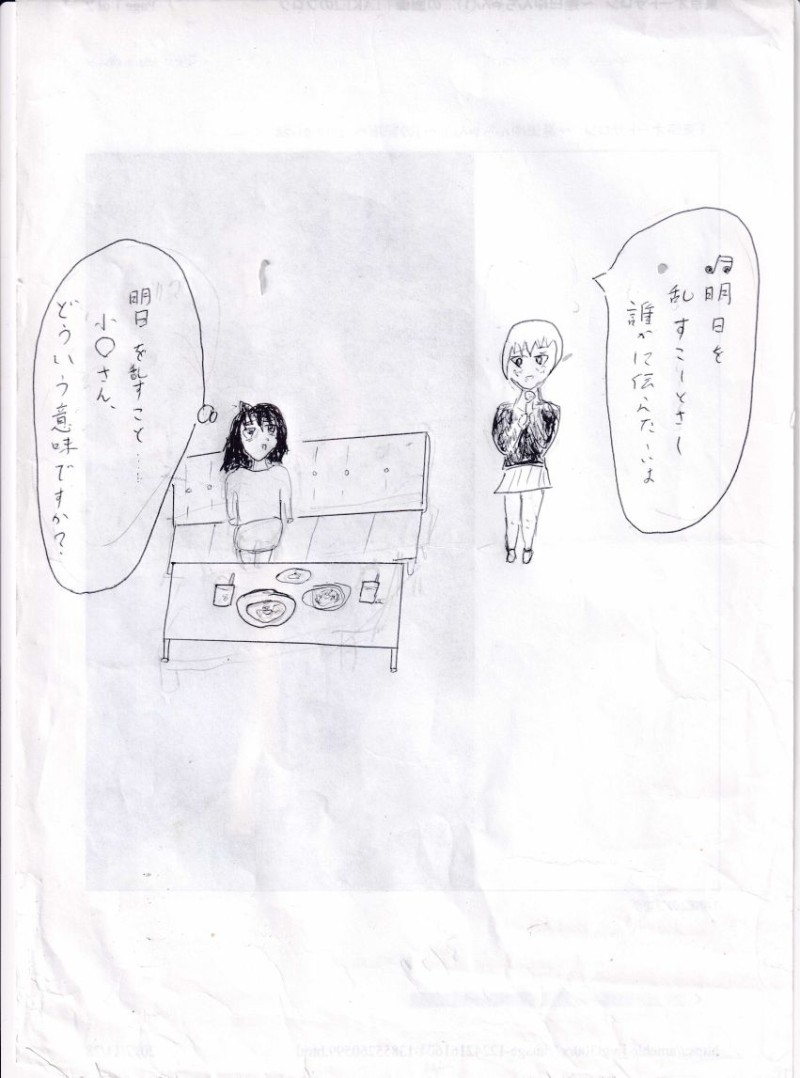 ♫明日を
乱すこーとさー
誰かに伝えたーいよ
明日を乱すこと……
小〇さん、
どういう意味ですか?